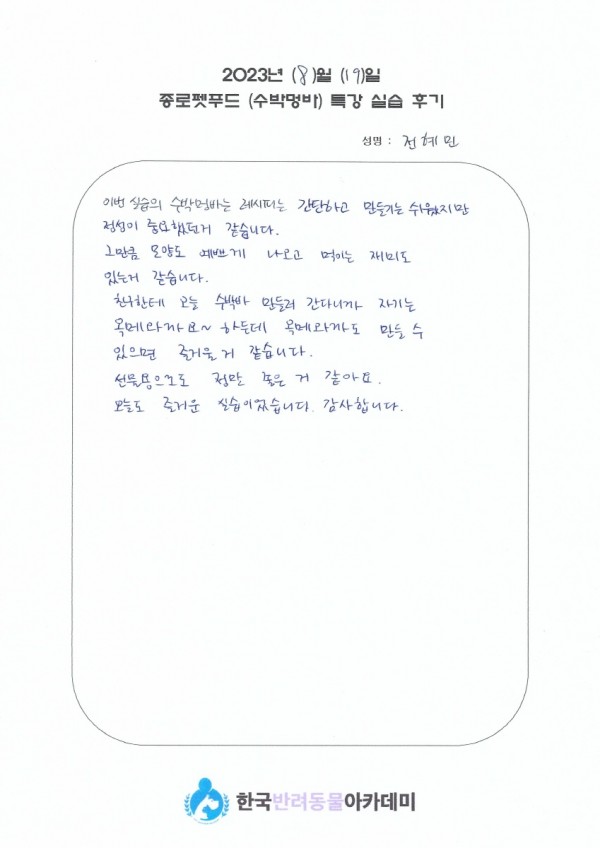 2023년 (8)월 (19)일
종로펫푸드 (수박멍바) 특강 실습 후기
성명 : 전혜민
이번 실습의 수박멍바는 레시피는 간단하고 만들기는 쉬웠지만
정성이 중요했던거 같습니다.
그만큼 모양도 예쁘게 나오고 먹이는 재미도
있는거 같습니다.
친구한테 오늘 수박바 만들러 간다니까 자기는
옥메와까요~ 하든데 옥메와까도 만들 수
있으면 즐거울거 같습니다.
선물용으로도 정말 좋은 거 같아요.
오늘도 즐거운 실습이었습니다. 감사합니다.
한국반려동물아카데미